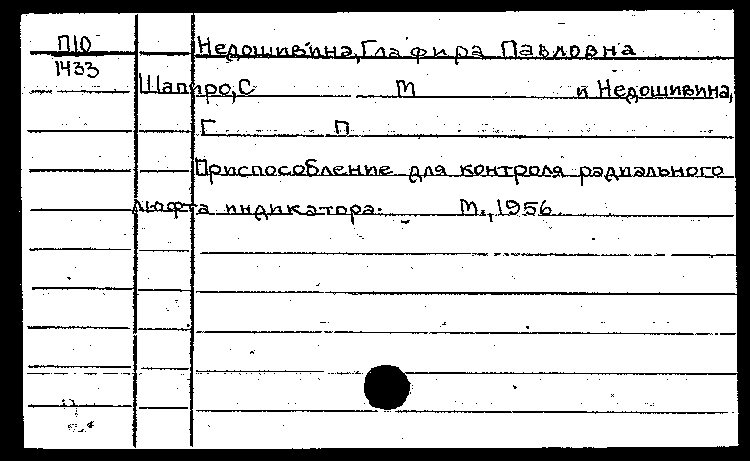 П10 Недошивина, Глафира Павловна
1433
Шапиро, С М и Недошивина,
Г П
Приспособление для контроля радиального
люфта индикатора. М., 1956